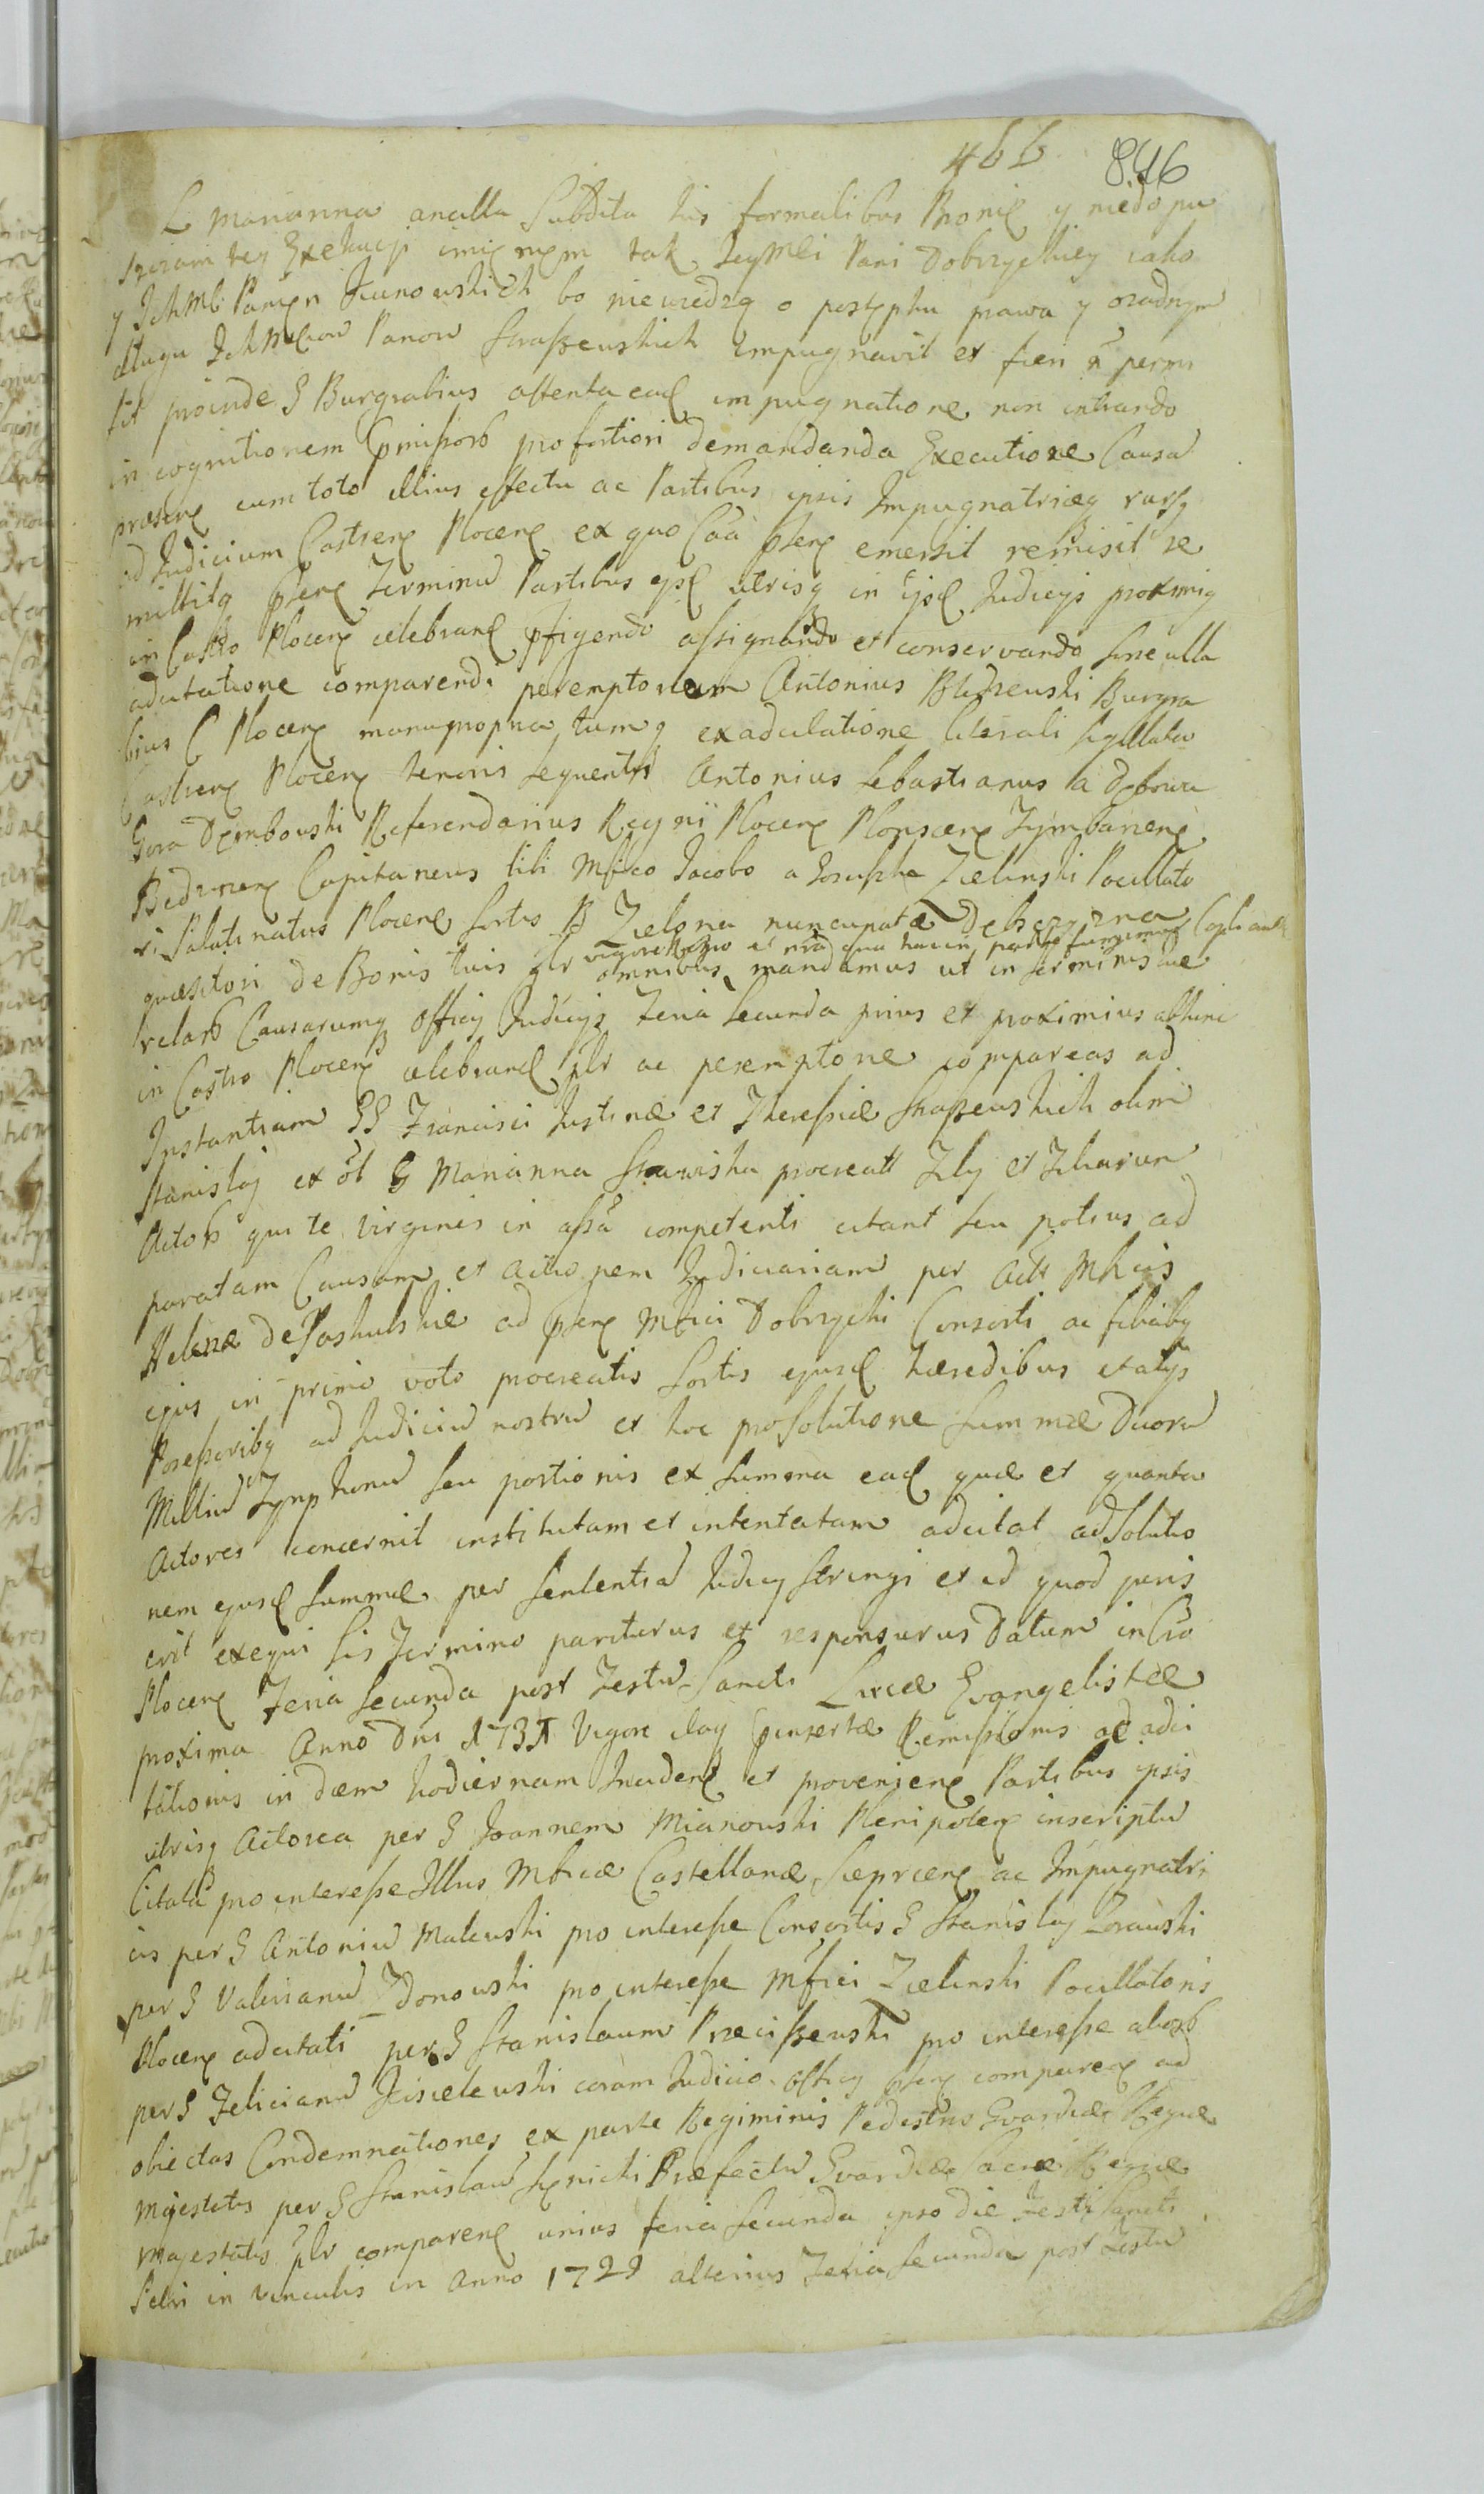 466 846
L Marianna ancilla Subdita his formalibus Bronię y niedopu
szczam tey Exekucyi imięniem tak JeyMCi Pani Dobrzyckiey iako
y IchMC Panien bo niewiedzą o postępku prawa y
długu IchMciow Panow Straszewskich impugnavit et fieri ñ permi
sit proinde G Burgrabius attenta ead impugnatione non intrando
in cognitionem pro fortiori demandanda Executione Causa
præsen cum toto illius effectu ac Partibus ipsis Impugnatricęq rursq
ad Judicium Castren Plocen ex quo Cãa psen emersit remisit re
mittitq psen Terminũ Partibus ipsis utrisq in ijsd Judicijs proximię
in Castro Plocen celebrand pfigendo assignando et conservando sine ulla
adcitatione comparendi peremptorium Antonius Bledzewski Burgra
bius C Plocen manu propria tumq ex adcitatione literali sigillata
Castren Plocen tenoris sequentis Antonius Sebastianus a Dębowa
Gora Dembowski Referendarius Regni Plocen Plonscen Tymbarcen
Capitaneus tibi Mfico Jacobo a Josepho Zielinski Pocillato
ri Palatinatus Plocen sortis B Zielona nuncupatæ
quæsitori de Bonis tuis glr vigore Regio et mã qua hac in parte fungimur Capli autt
omnibus mandamus ut in terminis que
relarũ Causarumq Officij Judicijs Feria Secunda prius et proximius abhinc
in Castro Plocen celebrand plr ac peremptorie compareas ad
Instantiam GG Francisci Justinæ et Theressiæ Straszewskich olim
Stanislaj ex ol G Marianna Stawiska procreatt Filij et Filiarum
Actorũ qui te Virgines in assã competenti citant seu potius ad
paratam Causam et actionem Judiciariam per Actt Mficis
Helenæ de Paskulskie ad psen Mfici Dobrzycki Consorti ac filiabq
ejus in primo voto procreatis sortis ejusd hæredibus et alijs
Possessoribq ad Judiciũ nostrũ et hoc pro solutione Summæ Duorũ
Milliũ Tynphonũ seu portionis ex Summa ead quæ et quanta
Actores concernit institutam et intentatam adcitat ad Solutio
nem ejusd Summæ per Sententiã Judicij stringi et id quod juris
erit exequi sis Termino pariturus et responsurus Datum in Cro
Plocen Feria Secunda post Festũ Sancti Lucæ Evangelistæ
proxima Anno Dni 1731 Vigore itaq psinsertæ Remissionis ac adci
tationis in diem hodiernam Inciden et provenien Partibus ipsis
utrisq Actorea per G Joannem Mianowski Plenipoten inscriptũ
Citata pro interesse Illus Mficæ Castellanæ Sieprcen ac Impugnatri
cis per G Antoniũ Malewski pro interesse Consortis G Stanislaj Zorawski
per G Valerianũ Zdonowski pro interesse Mfici Zielinski Pocillatoris
Plocen adcitati per G Stanislaum Przeciszewski pro interesse aliorũ
per G Felicianũ coram Judicio Officij psen comparen ad
obiectas Condemnationes ex parte Regiminis Pedestris Gvardiæ Regiæ
Majestatis per G Stanislaũ Præfectũ Gvardiæ Sacræ Regiæ
Majestatis plr comparen unius feria Secunda ipso die Festi Sancti
Petri in vinculis in Anno 1729 alterius Feria Secunda post Festũ